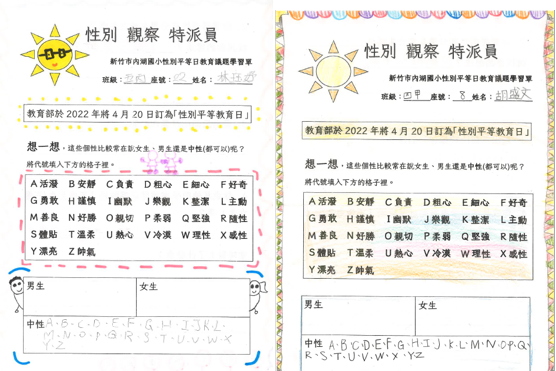 性別 觀察 特派員
新竹市內湖國小性別平等日教育議題學習單
班級： 座號： 姓名：
教育部於 2022 年將 4 月 20 日訂為「性別平等教育日」
想一想，這些個性比較常在說女生、男生還是中性(都可以)呢？
將代號填入下方的格子裡。
A 活潑 B 安靜 C 負責 D 粗心 E 細心 F 好奇
G 勇敢 H 謹慎 I 幽默 J 樂觀 K 整潔 L 主動
M 善良 N 好勝 O 親切 P 柔弱 Q 堅強 R 隨性
S 體貼 T 溫柔 U 熱心 V 冷漠 W 理性 X 感性
Y 漂亮 Z 帥氣
男生 女生
中性 A、B、C、D、E、F、G、H、I、J、K、L、
M、N、O、P、Q、R、S、T、U、V、W、X
Y、Z
性別 觀察 特派員
新竹市內湖國小性別平等日教育議題學習單
班級：四甲 座號：8 姓名：胡盛文
教育部於 2022 年將 4 月 20 日訂為「性別平等教育日」
想一想，這些個性比較常在說女生、男生還是中性(都可以)呢？
將代號填入下方的格子裡。
A 活潑 B 安靜 C 負責 D 粗心 E 細心 F 好奇
G 勇敢 H 謹慎 I 幽默 J 樂觀 K 整潔 L 主動
M 善良 N 好勝 O 親切 P 柔弱 Q 堅強 R 隨性
S 體貼 T 溫柔 U 熱心 V 冷漠 W 理性 X 感性
Y 漂亮 Z 帥氣
男生 女生
中性 A、B、C、D、E、F、G、H、I、J、K、L、M、N、O、P、Q、
R、S、T、U、V、W、X、Y Z